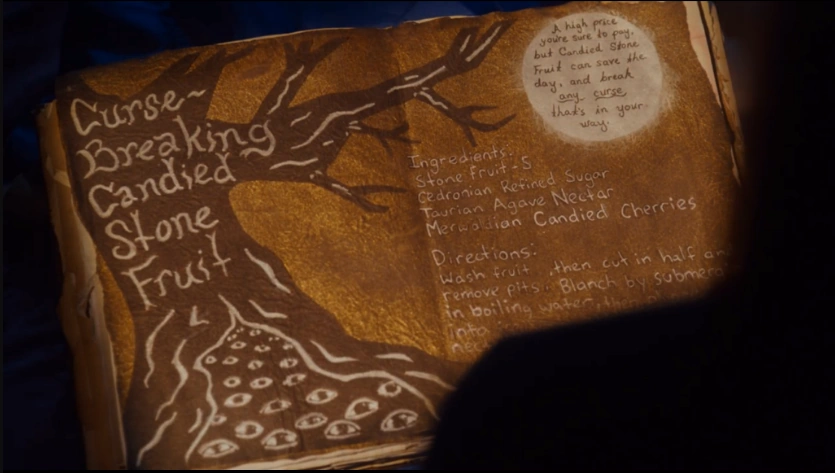 Curse-
Breaking
Candied
Stone
Fruit
A high price
you're sure to pay,
but Candied Stone
Fruit can save the
day, and break
any curse
that's in your
way.
Ingredients:
Stone fruit - 5
Cedronian Refined Sugar
Taurian Agave Nectar
Merwaldian Candied Cherries
Directions:
Wash fruit, then cut in half and
remove pits. Blanch by submer
in boiling water, then
into